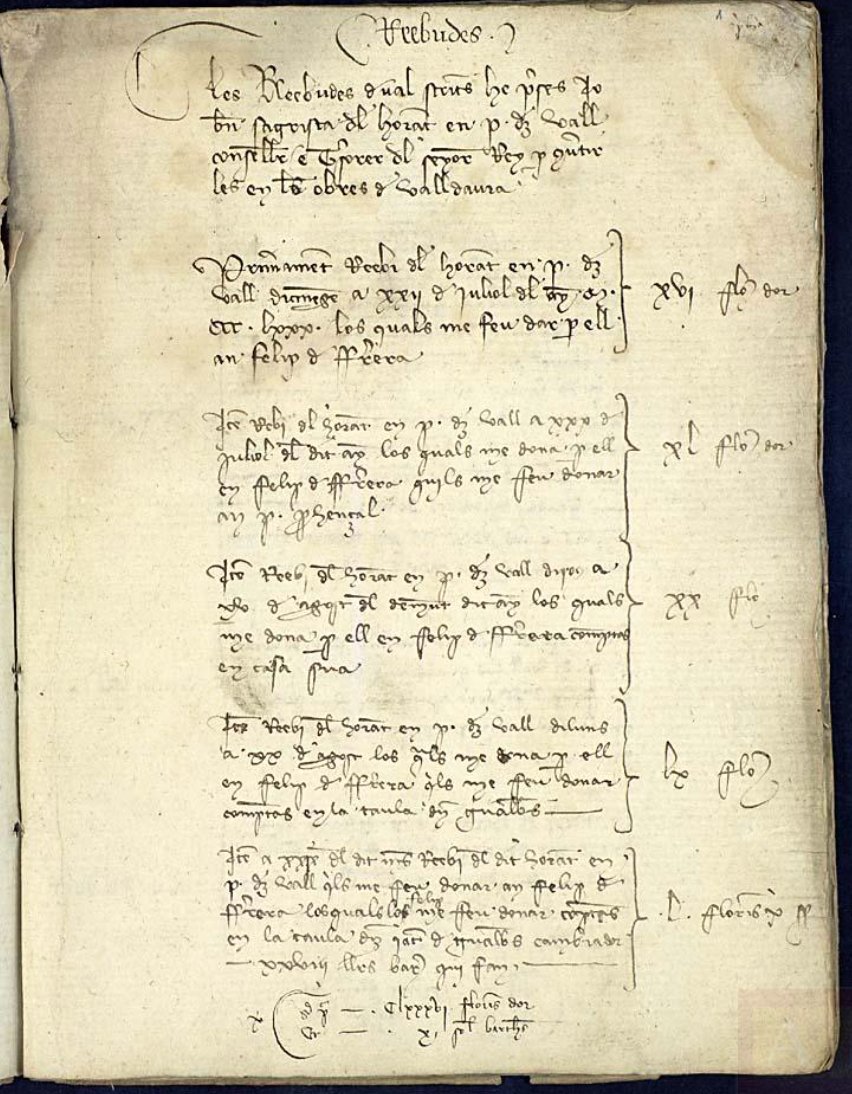 Reebudes
Les Reebudes deval scrites he preses Jo
Bn sagrista dl honrat en p. dez vall
conseller e Tresorer dl senyor Rey p
les en les obres d valldaura
Primerament Reebi dl honrat en p. dez
vall diumenge a xxii d juliol dl any M.
CCC. lxxx. los quals me feu dar p ell
an felip d fferrera
xvi flo dor
Item Rebi dl honrat en p. dez vall a xxx d
juliol dl dit any los quals me dona p ell
en felip d fferrera quils me feu donar
an p. prohençal.
xl flo dor
Item Reebi dl honrat en p. dez vall a
xv d agost dl dit any los quals
me dona p ell en felip d fferrera comptas
en casa sua
xx flo
Item Reebi dl honrat en p. dez vall diluns
a xx d agost los qls me dona p ell
en felip d fferrera qls me feu donar
comptas en la taula den gualbes
lx flo
Item a dl dit mes Reebi dl dit honrat en
p. dez vall qls me feu donar an felip d
felip
fferrera los quals los me feu donar comptas
en la taula d gualbes cambiador
xxviii llrs bar qui fan
.l. florins x ss
Clxxxvi florins dor
x sol barchs